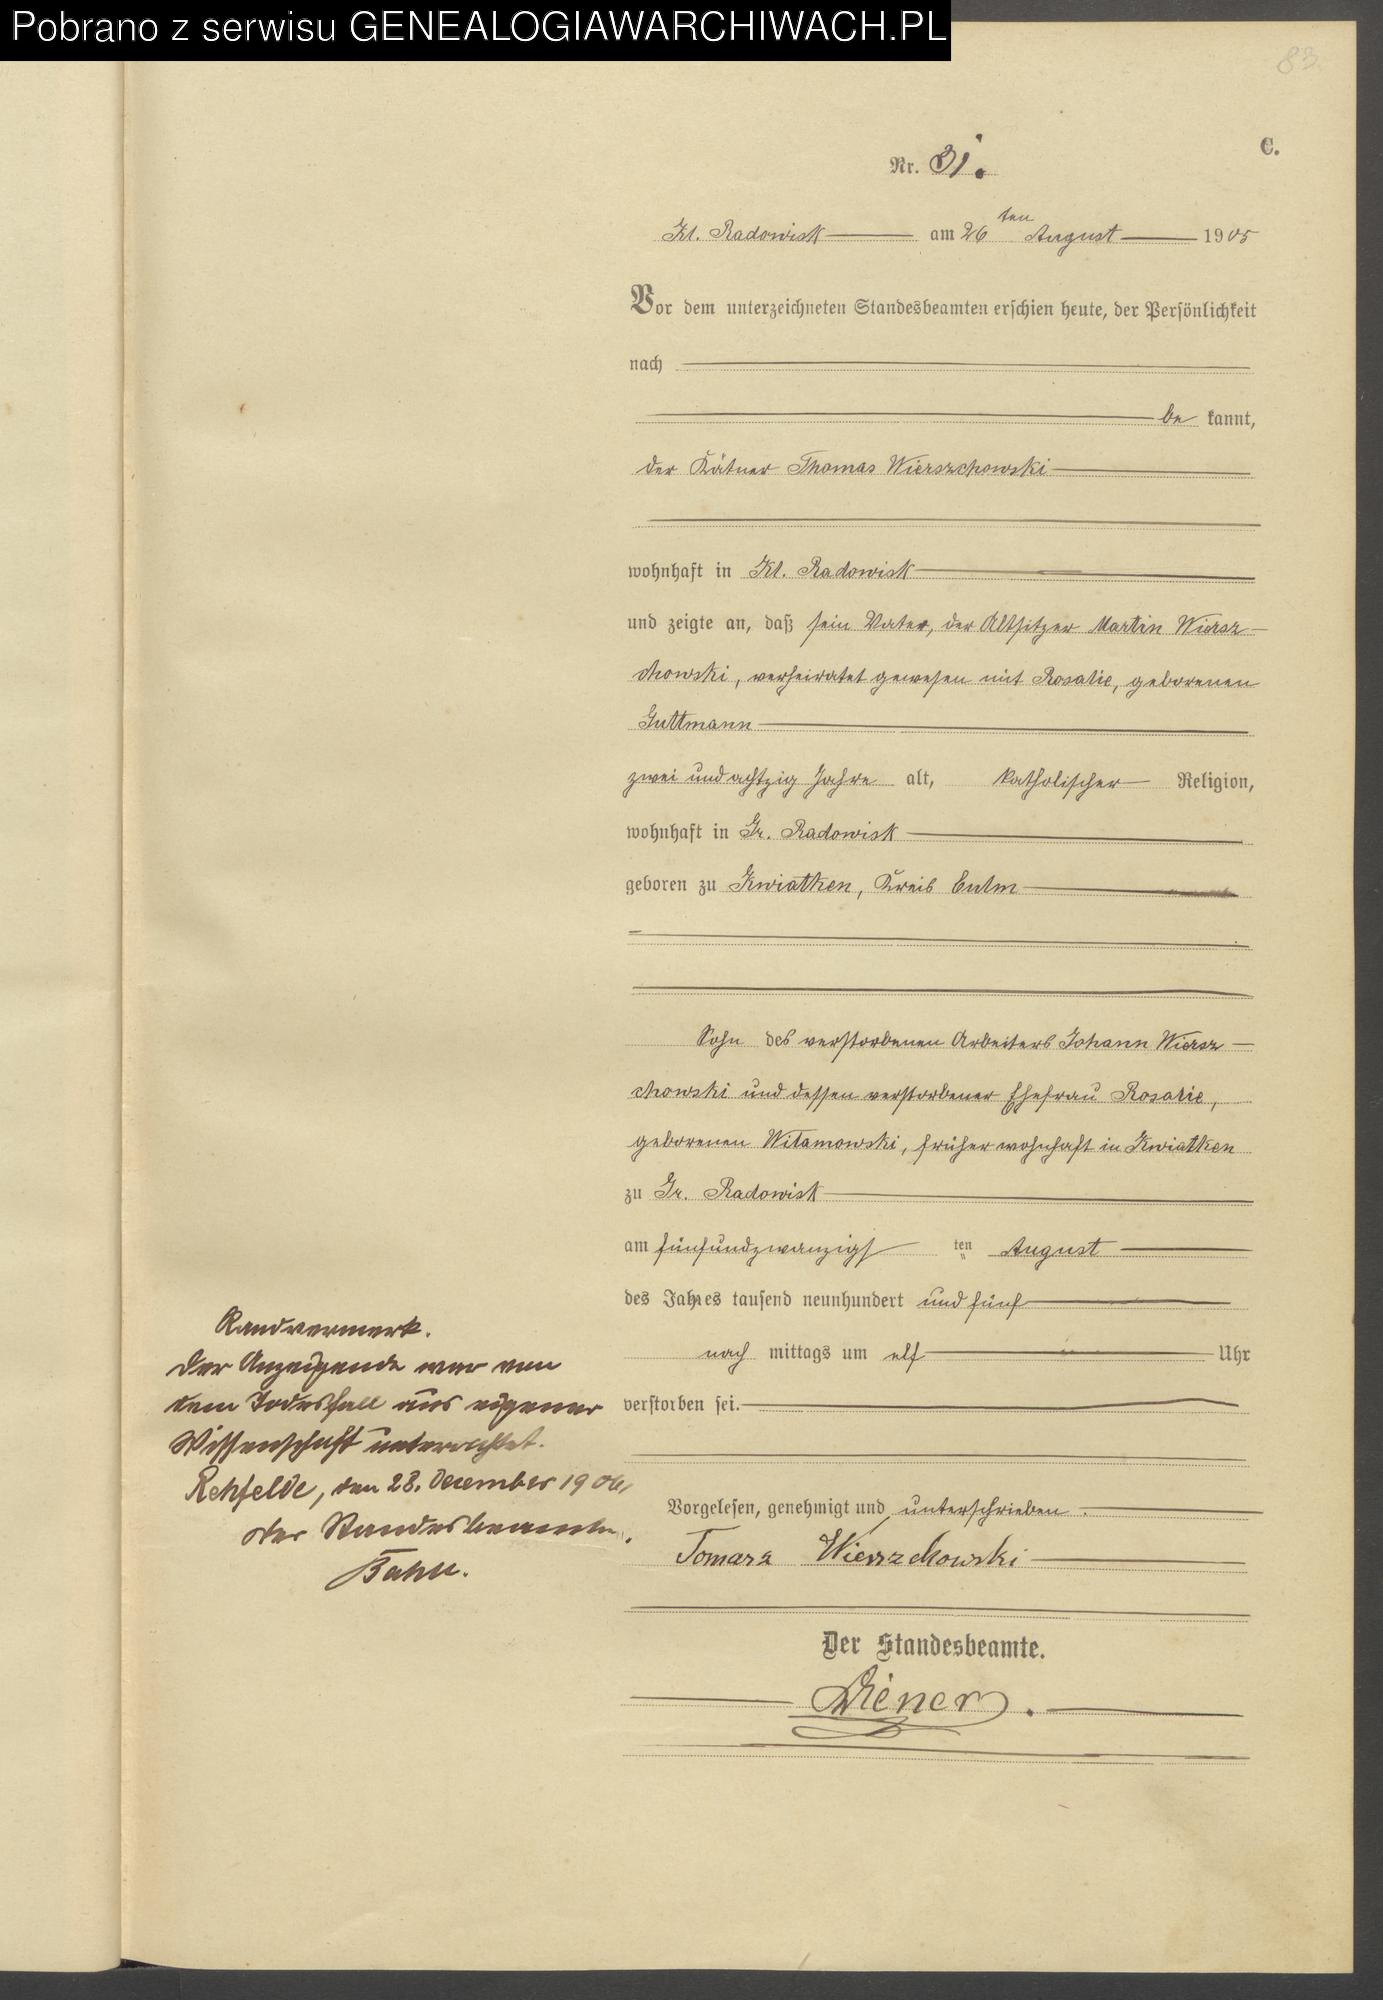 Pobrano z serwisu GENEALOGIAWARCHIWACH.PL
83.
C.
Nr. 31.
Kl. Radowisk am 26ten August 1905
Vor dem unterzeichneten Standesbeamten erschien heute, der Persönlichkeit
nach
be kannt,
der Kätner Thomas Wierszchowski
wohnhaft in Kl. Radowisk
und zeigte an, daß sein Vater, der Altsitzer Martin Wiersz-
chowski, verheiratet gewesen mit Rosalie, geborenen
Guttmann
zwei und achtzig Jahre alt, katholischer Religion,
wohnhaft in Gr. Radowisk
geboren zu Kwiatken, Kreis Culm
Sohn des verstorbenen Arbeiters Johann Wiersz-
chowski und dessen verstorbener Ehefrau Rosalie,
geborenen Witamowski, früher wohnhaft in Kwiatken
zu Gr. Radowisk
am fünfundzwanzigs ten August
des Jahres tausend neunhundert und fünf
nach mittags um elf Uhr
verstorben sei.
Vorgelesen, genehmigt und unterschrieben.
Tomasz Wierzchowski
Der Standesbeamte.
Diener.
Randvermerk.
Der Anzeigende war von
dem Todesfall aus eigener
Wissenschaft unterrichtet.
Rehfelde, den 28. Dezember 1906,
Der Standesbeamte.